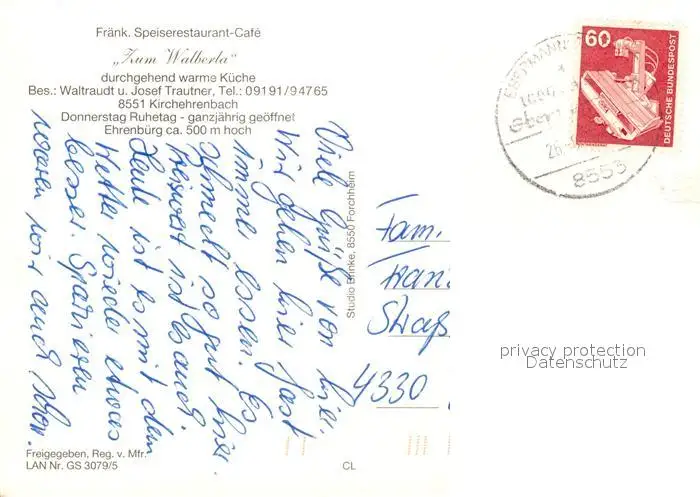 Fränk. Speiserestaurant-Café
„Zum Walberla"
durchgehend warme Küche
Bes.: Waltraudt u. Josef Trautner, Tel.: 09191/94765
8551 Kirchehrenbach
Donnerstag Ruhetag - ganzjährig geöffnet
Ehrenbürg ca. 500 m hoch
Viele Grüße von hier.
Wir gehen hier fast
immer essen. Es
schmeckt so gut hier.
Preiswert ist es auch.
Heute ist es mit dem
Wetter wieder etwas
besser. Spazieren
waren wir auch schon.
Freigegeben, Reg. v. Mfr.
LAN Nr. GS 3079/5
Studio Brinke, 8550 Forchheim
CL
Fam.
Straß
4330
60
DEUTSCHE BUNDESPOST
EBERMANN
26.
8553
privacy protection
Datenschutz